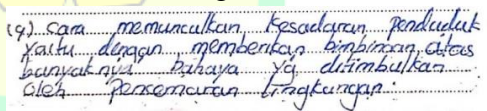 (4) cara memunculkan kesadaran penduduk
yaitu dengan memberikan bimbingan atas
banyaknya bahaya yg ditimbulkan
oleh pencemaran lingkungan.